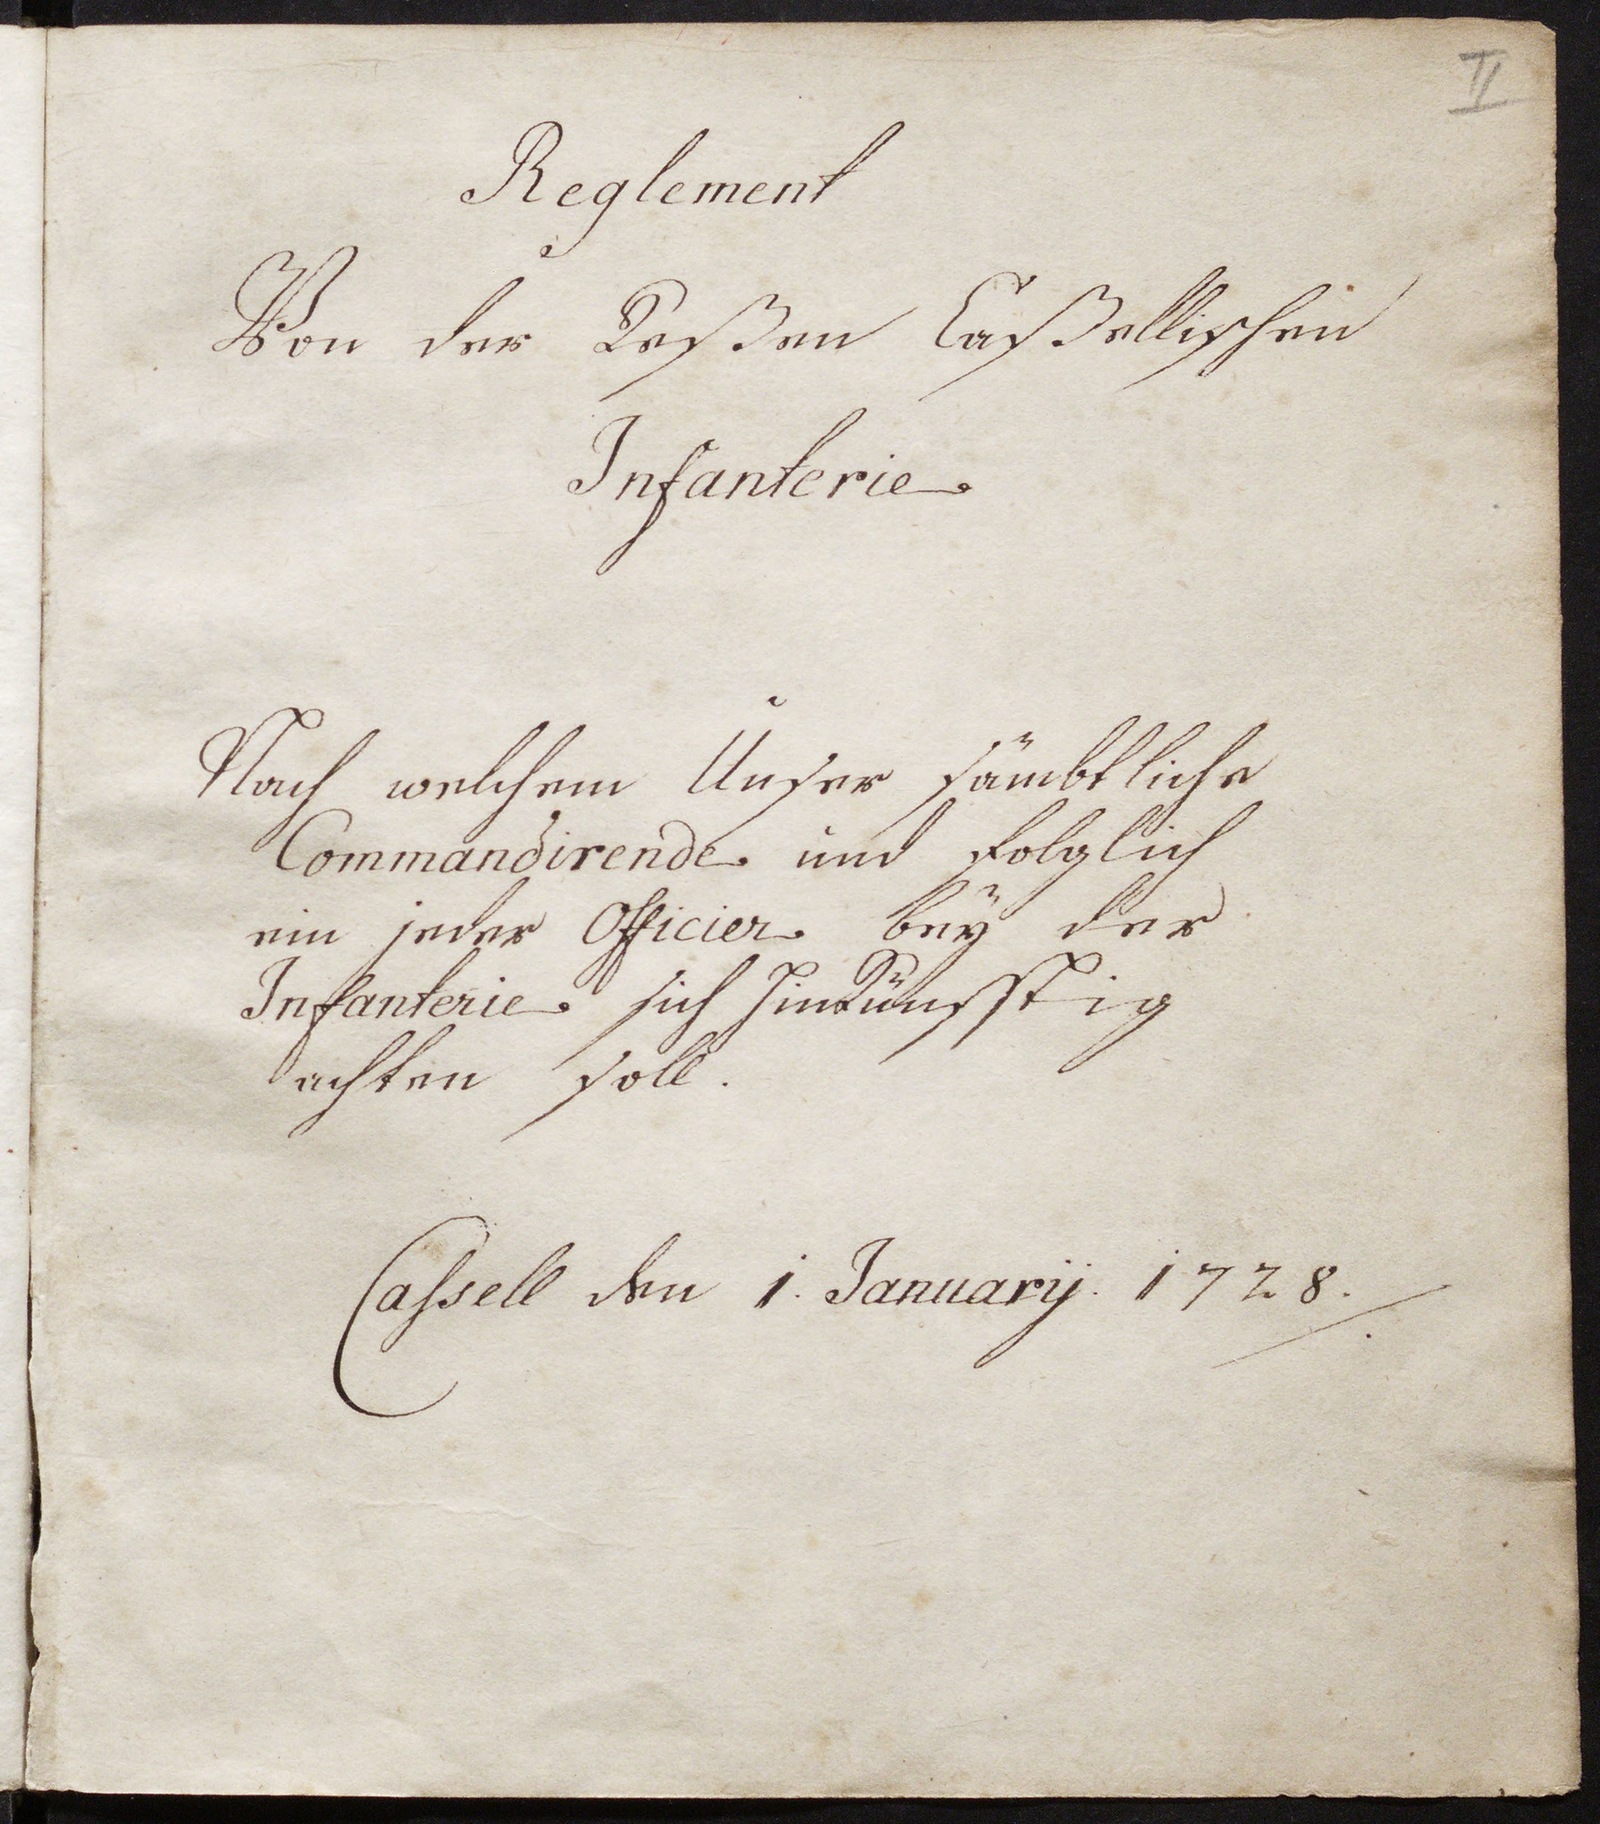 II
Reglement
Von der Heßen Caßellischen
Infanterie
Nach welchem Unser sämbtliche
Commandirende und folglich
ein jeder Officier beÿ der
Infanterie sich hinkünfftig
achten soll.
Cassell den 1. Januarij. 1728.